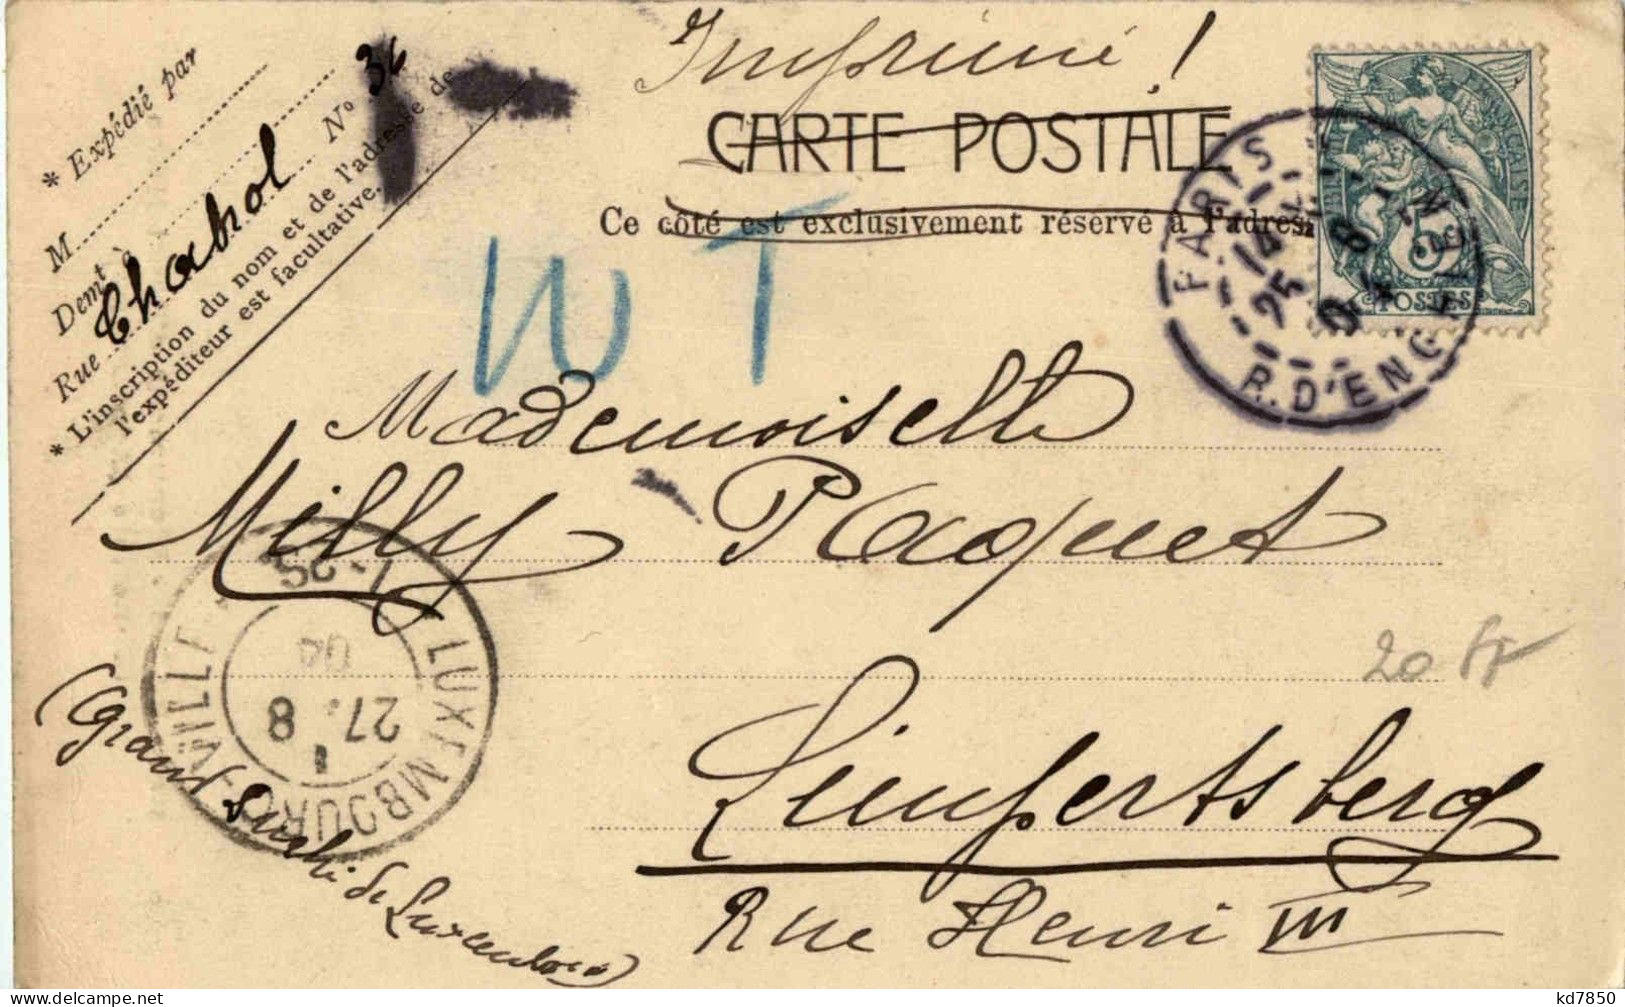 Imprimé !
CARTE POSTALE
Ce côté est exclusivement réservé à l'adres
* Expédié par
M
Demt à
Rue Chabrol N° 36
* L'inscription du nom et de l'adresse de
l'expéditeur est facultative.
WT
PARIS
14
25 8
04
R. D'ENGHIEN
FRANÇAISE
5
POSTES
Mademoiselle
Milly Paquet
Limpertsberg
Rue Henri VII
(Grand Duché de Luxembourg)
LUXEMBOURG-VILLE
1-2S
27.8
04
20 fr
kd7850